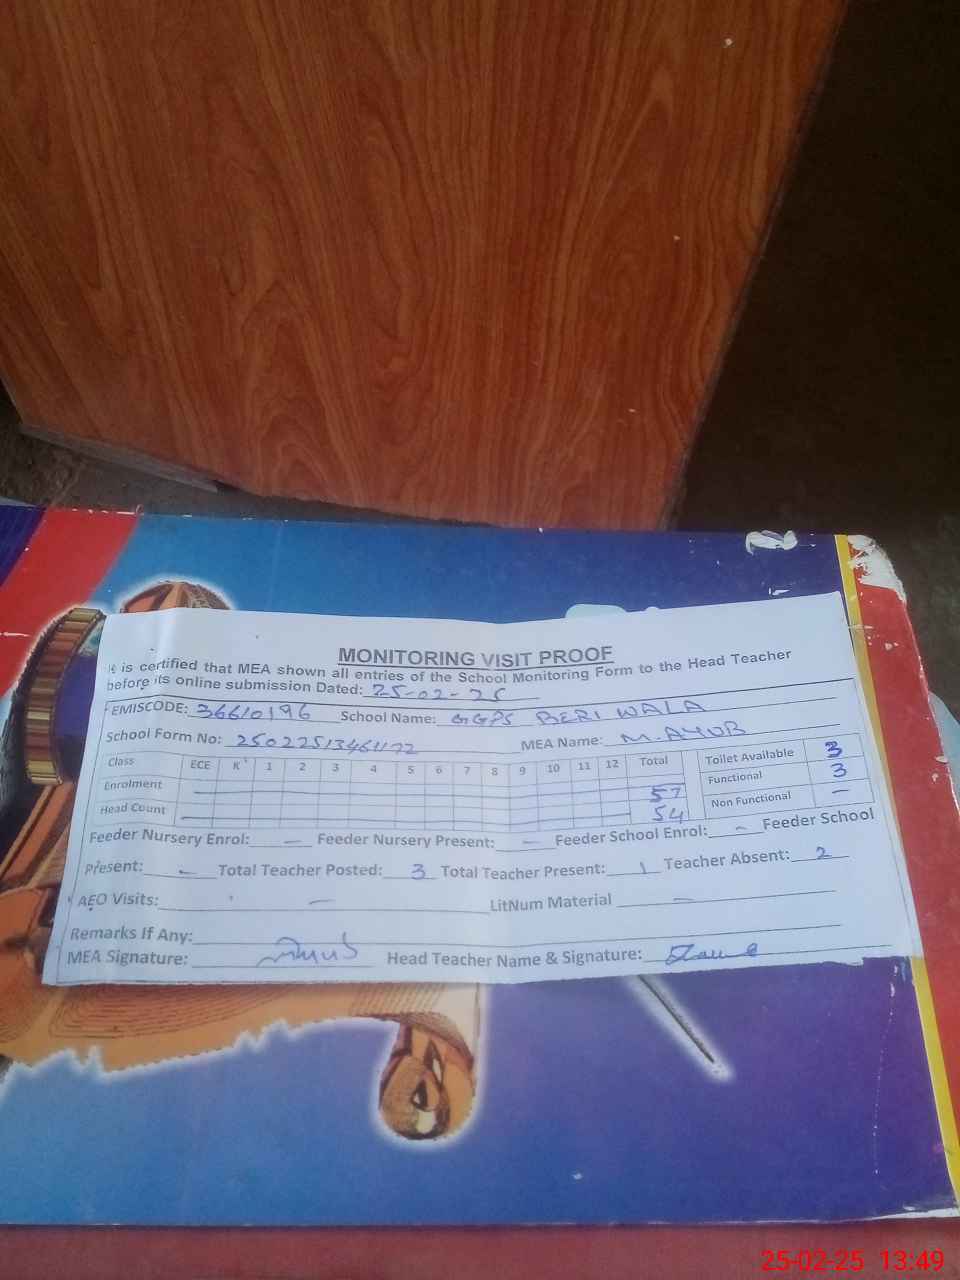 MONITORING VISIT PROOF
It is certified that MEA shown all entries of the School Monitoring Form to the Head Teacher
before its online submission Dated: 25-02-25
EMISCODE: 36610196 School Name: GGPS BERI WALA
School Form No: MEA Name: M.AYUB
Class ECE K 1 2 3 4 5 6 7 8 9 10 11 12 Total
Enrolment 57
Head Count 54
Toilet Available 3
Functional 3
Non Functional —
Feeder Nursery Enrol: — Feeder Nursery Present: — Feeder School Enrol: — Feeder School
Present: — Total Teacher Posted: 3 Total Teacher Present: 1 Teacher Absent: 2
AEO Visits: — LitNum Material —
Remarks If Any:
MEA Signature: Head Teacher Name & Signature:
25-02-25 13:49